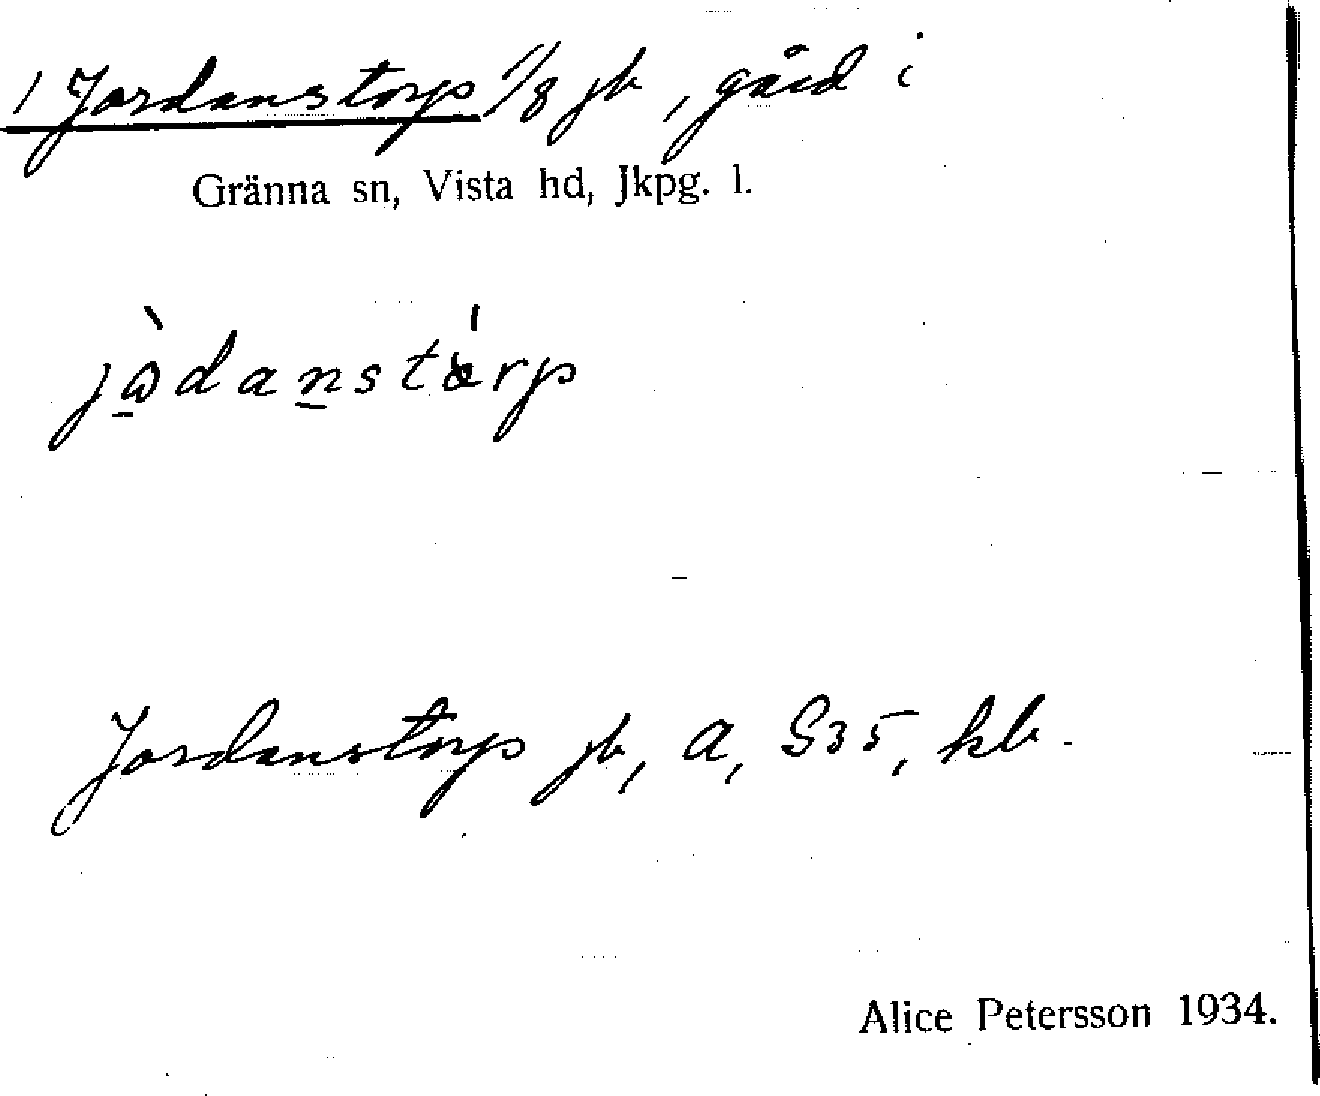 1 Jordanstorp 1/8 jb, gård i
Gränna sn, Vista hd, Jkpg. l.
jɷ̀danstɔ́rp
Jordanstorp jb, a, S35, kb.
Alice Petersson 1934.